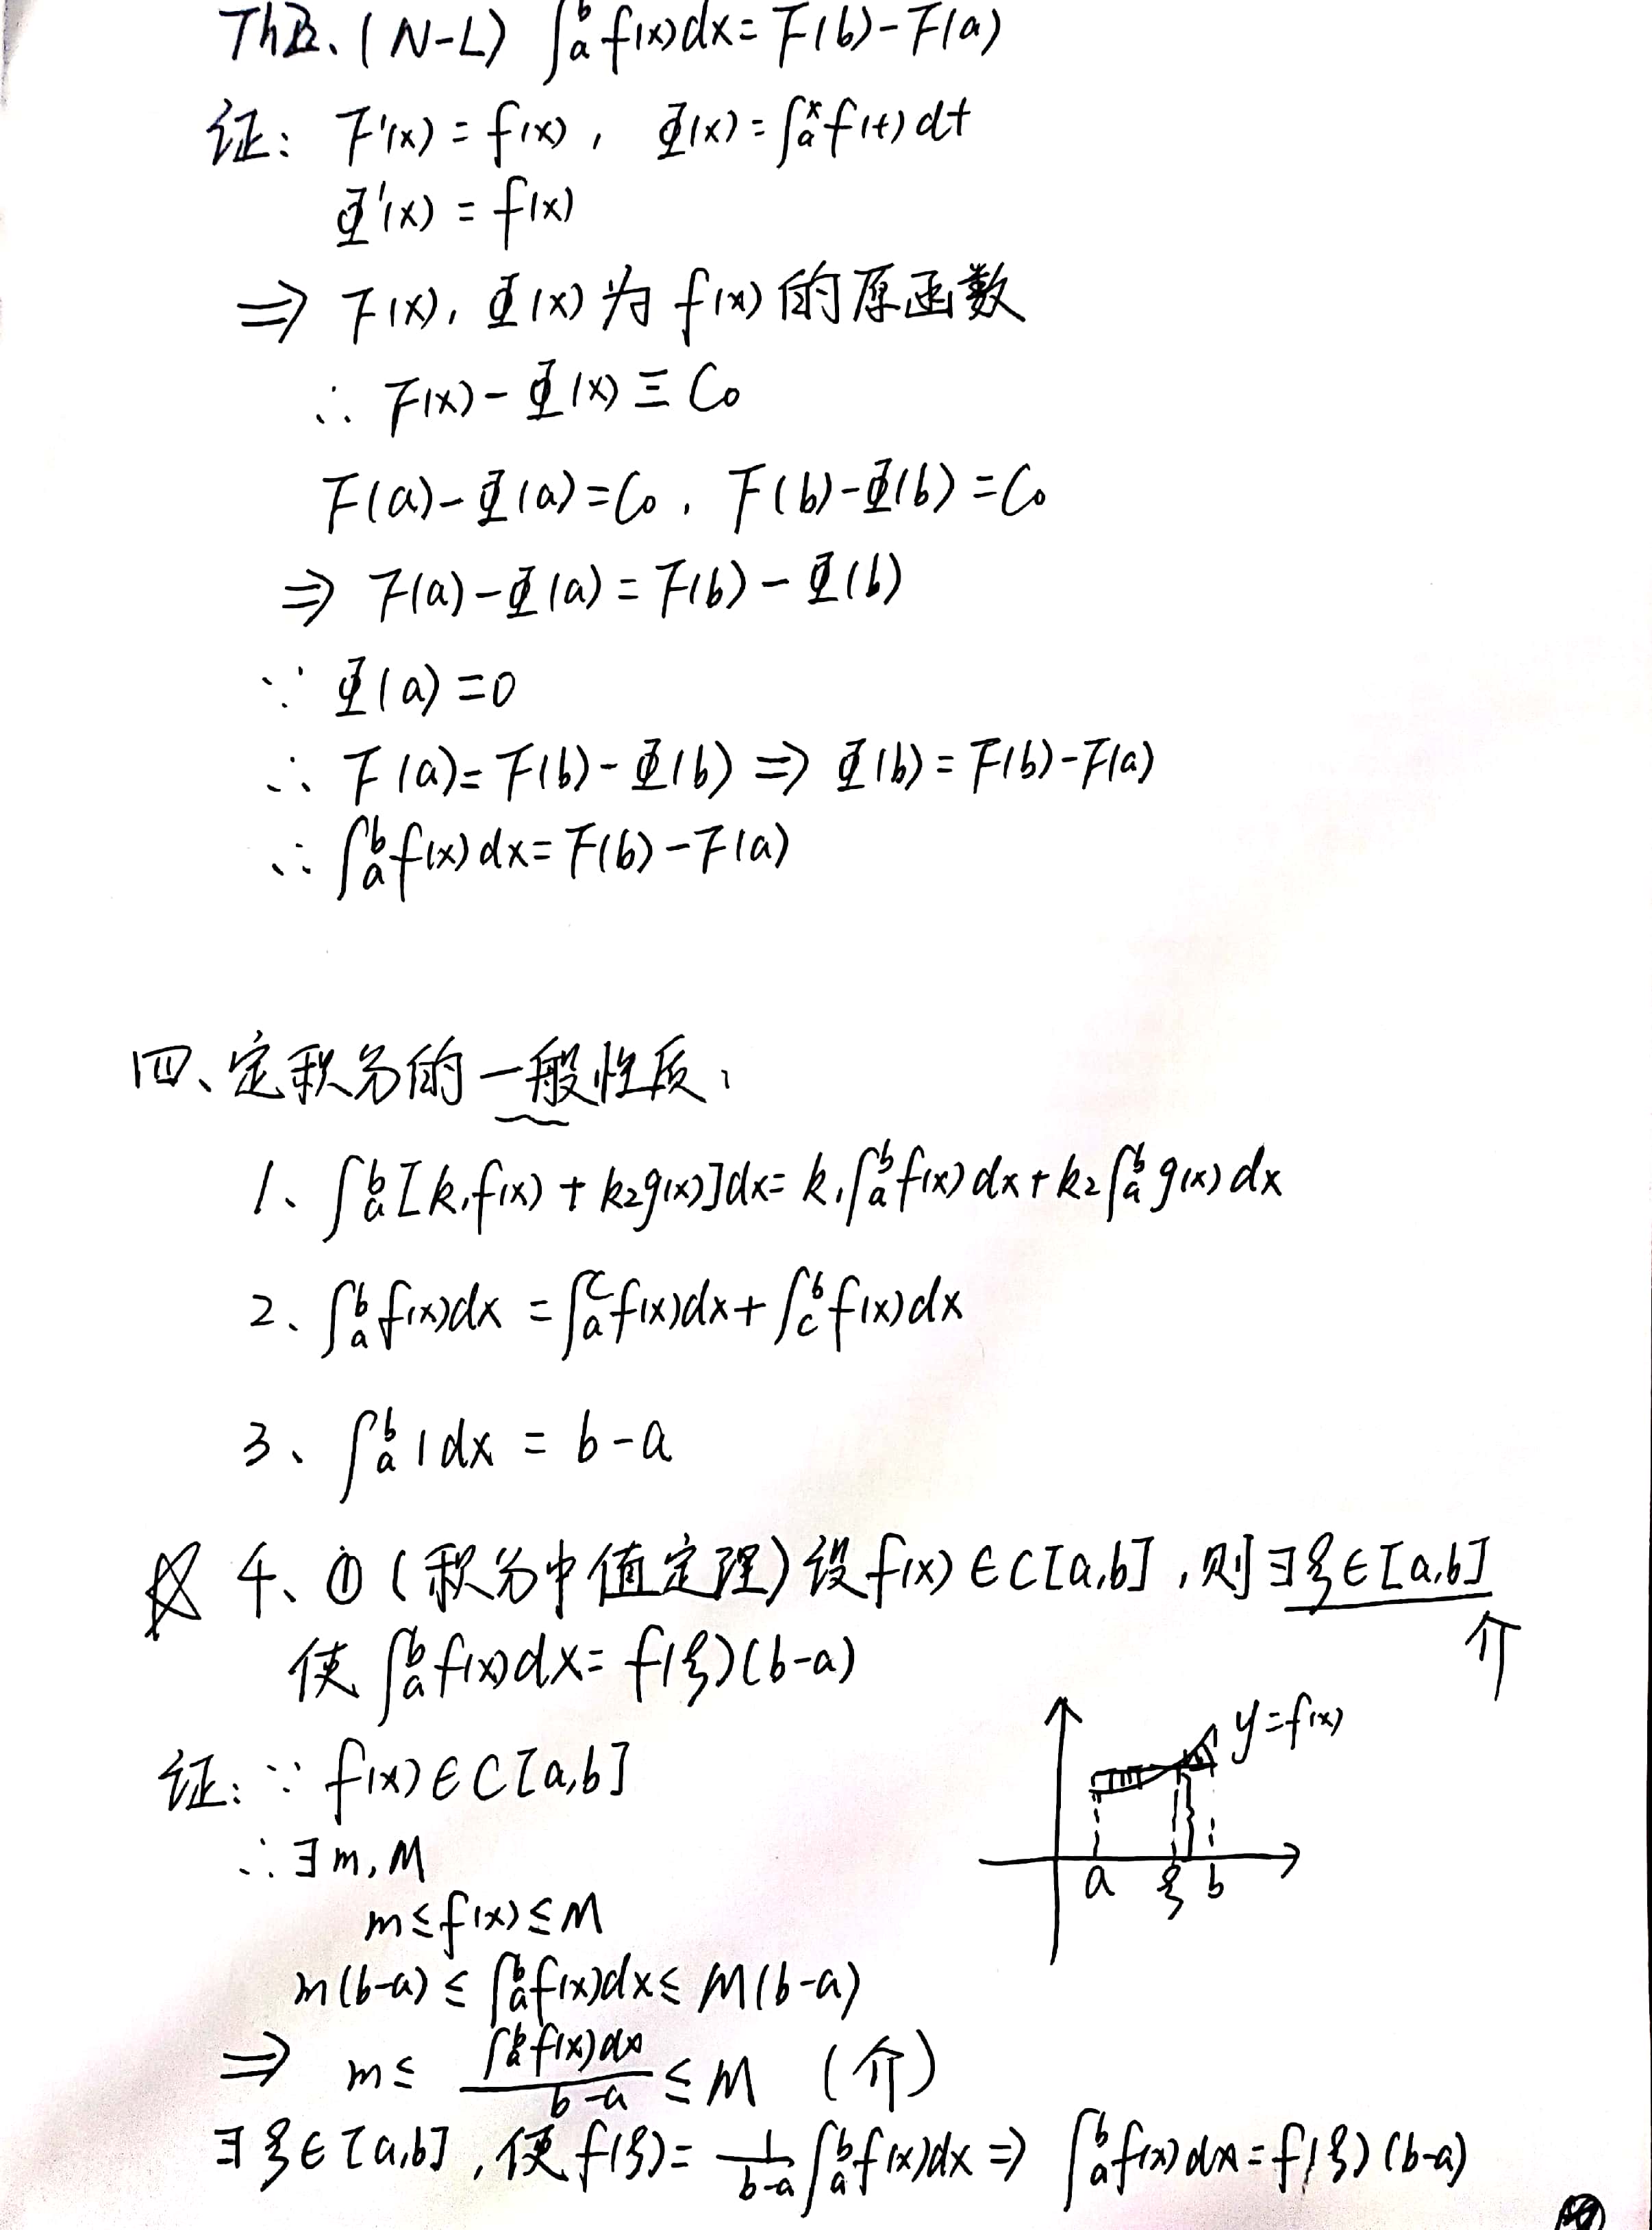 Th2、(N-L) ∫ₐᵇ f(x)dx = F(b)-F(a)
证: F'(x) = f(x), Φ(x) = ∫ₐˣ f(t)dt
Φ'(x) = f(x)
⇒ F(x), Φ(x) 为 f(x) 的原函数
∴ F(x) - Φ(x) ≡ C₀
F(a) - Φ(a) = C₀, F(b) - Φ(b) = C₀
⇒ F(a) - Φ(a) = F(b) - Φ(b)
∵ Φ(a) = 0
∴ F(a) = F(b) - Φ(b) ⇒ Φ(b) = F(b) - F(a)
∴ ∫ₐᵇ f(x)dx = F(b) - F(a)
四、定积分的一般性质:
1、∫ₐᵇ [k₁f(x) + k₂g(x)]dx = k₁∫ₐᵇ f(x)dx + k₂∫ₐᵇ g(x)dx
2、∫ₐᵇ f(x)dx = ∫ₐᶜ f(x)dx + ∫_c^b f(x)dx
3、∫ₐᵇ 1dx = b-a
4、① (积分中值定理) 设 f(x) ∈ C[a,b], 则 ∃ξ ∈ [a,b]
介
使 ∫ₐᵇ f(x)dx = f(ξ)(b-a)
y = f(x)
a ξ b
证: ∵ f(x) ∈ C[a,b]
∴ ∃ m, M
m ≤ f(x) ≤ M
m(b-a) ≤ ∫ₐᵇ f(x)dx ≤ M(b-a)
⇒ m ≤ ∫ₐᵇ f(x)dx / (b-a) ≤ M (介)
∃ ξ ∈ [a,b], 使 f(ξ) = 1/(b-a) ∫ₐᵇ f(x)dx ⇒ ∫ₐᵇ f(x)dx = f(ξ)(b-a)